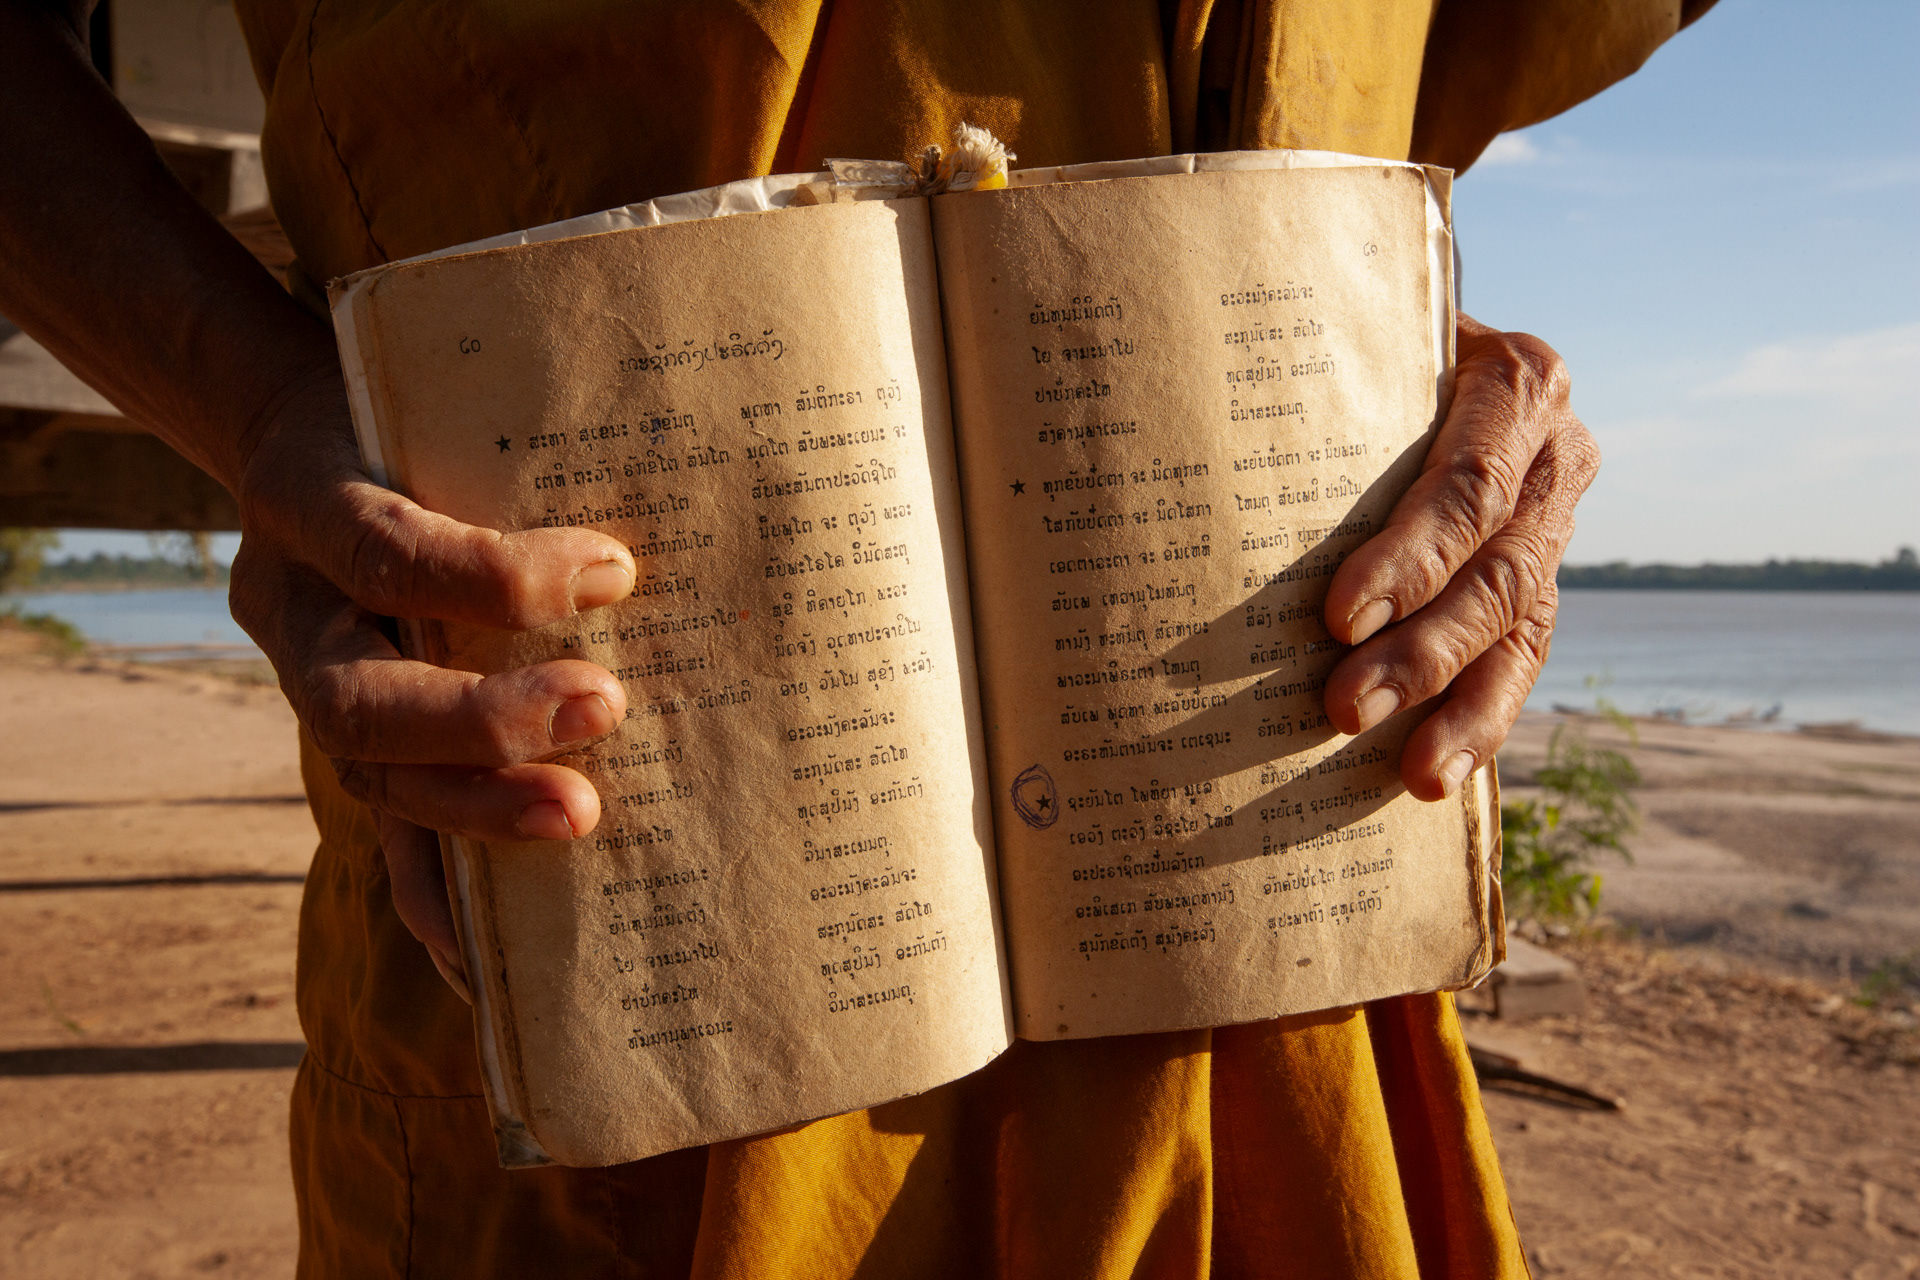 ໘໐
ທະຊັກຄັງປະຣິດຕັງ.
★ ສະທາ ສຸເຂນະ ຣັກຂັນຕຸ ພຸດທາ ສັນຕິກະຣາ ຕຸວັງ
ເຕຫິ ຕະວັງ ຣັກຂິໂຕ ສັນໂຕ ມຸດໂຕ ສັບພະພະເຍນະ ຈະ
ສັບພະໂຣຄະວິນິມຸດໂຕ ສັບພະສັນຕາປະວັດຊິໂຕ
ມະຕິກກັນໂຕ ນິບພຸໂຕ ຈະ ຕຸວັງ ພະວະ
ວັດຊັນຕຸ ສັບພະໂຣໂຄ ວິນັດສະຕຸ
ມາ ເຕ ພະວັຕວັນຕະຣາໂຍ ສຸຂີ ທີຄາຍຸໂກ ພະວະ
ທະນະສີລິດສະ ນິດຈັງ ວຸດທາປະຈາຍິໂນ
ທັມມາ ວັດທັນຕິ ອາຍຸ ວັນໂນ ສຸຂັງ ພະລັງ.
ຍັນທຸນນິມິດຕັງ ອະວະມັງຄະລັນຈະ
ໂຍ ຈາມະນາໂປ ສະກຸນັດສະ ສັດໂທ
ປາປັກຄະໂຫ ທຸດສຸປິນັງ ອະກັນຕັງ
ພຸດທານຸພາເວນະ ວິນາສະເມນຕຸ.
ຍັນທຸນນິມິດຕັງ ອະວະມັງຄະລັນຈະ
ໂຍ ຈາມະນາໂປ ສະກຸນັດສະ ສັດໂທ
ປາປັກຄະໂຫ ທຸດສຸປິນັງ ອະກັນຕັງ
ທັມມານຸພາເວນະ ວິນາສະເມນຕຸ.
໘໑
ຍັນທຸນນິມິດຕັງ ອະວະມັງຄະລັນຈະ
ໂຍ ຈາມະນາໂປ ສະກຸນັດສະ ສັດໂທ
ປາປັກຄະໂຫ ທຸດສຸປິນັງ ອະກັນຕັງ
ສັງຄານຸພາເວນະ ວິນາສະເມນຕຸ.
★ ທຸກຂັບປັດຕາ ຈະ ນິດທຸກຂາ ພະຍັບປັດຕາ ຈະ ນິບພະຍາ
ໂສກັບປັດຕາ ຈະ ນິດໂສກາ ໂຫນຕຸ ສັບເພປິ ປານິໂນ
ເອດຕາວະຕາ ຈະ ອັມເຫຫິ ສັມພະຕັງ ປຸນຍະສັມປະທັງ
ສັບເພ ເທວານຸໂມທັນຕຸ ສັບພະສັມປັດຕິ
ທານັງ ທະທັນຕຸ ສັດທາຍະ ສີລັງ ຣັກຂັນຕຸ
ພາວະນາພິຣະຕາ ໂຫນຕຸ ຄັດສັນຕຸ
ສັບເພ ພຸດທາ ພະລັບປັດຕາ ປັດເຈການັນ
ອະຣະຫັນຕານັນຈະ ເຕເຊນະ ຣັກຂັງ ພັນທາ
★ ຊະຍັນໂຕ ໂພທິຍາ ມູເລ ສັກຍານັງ ນັນທິວັດທະໂນ
ເອວັງ ຕະວັງ ວິຊະໂຍ ໂຫຫິ ຊະຍັດສຸ ຊະຍະມັງຄະເລ
ອະປະຣາຊິຕະປັນລັງເກ ສີເສ ປະຖະວິໂປກຂະເຣ
ອະພິເສເກ ສັບພະພຸດທານັງ ອັກຄັບປັດໂຕ ປະໂມທະຕິ
ສຸນັກຂັດຕັງ ສຸມັງຄະລັງ ສຸປະພາຕັງ ສຸຫຸດຖິຕັງ